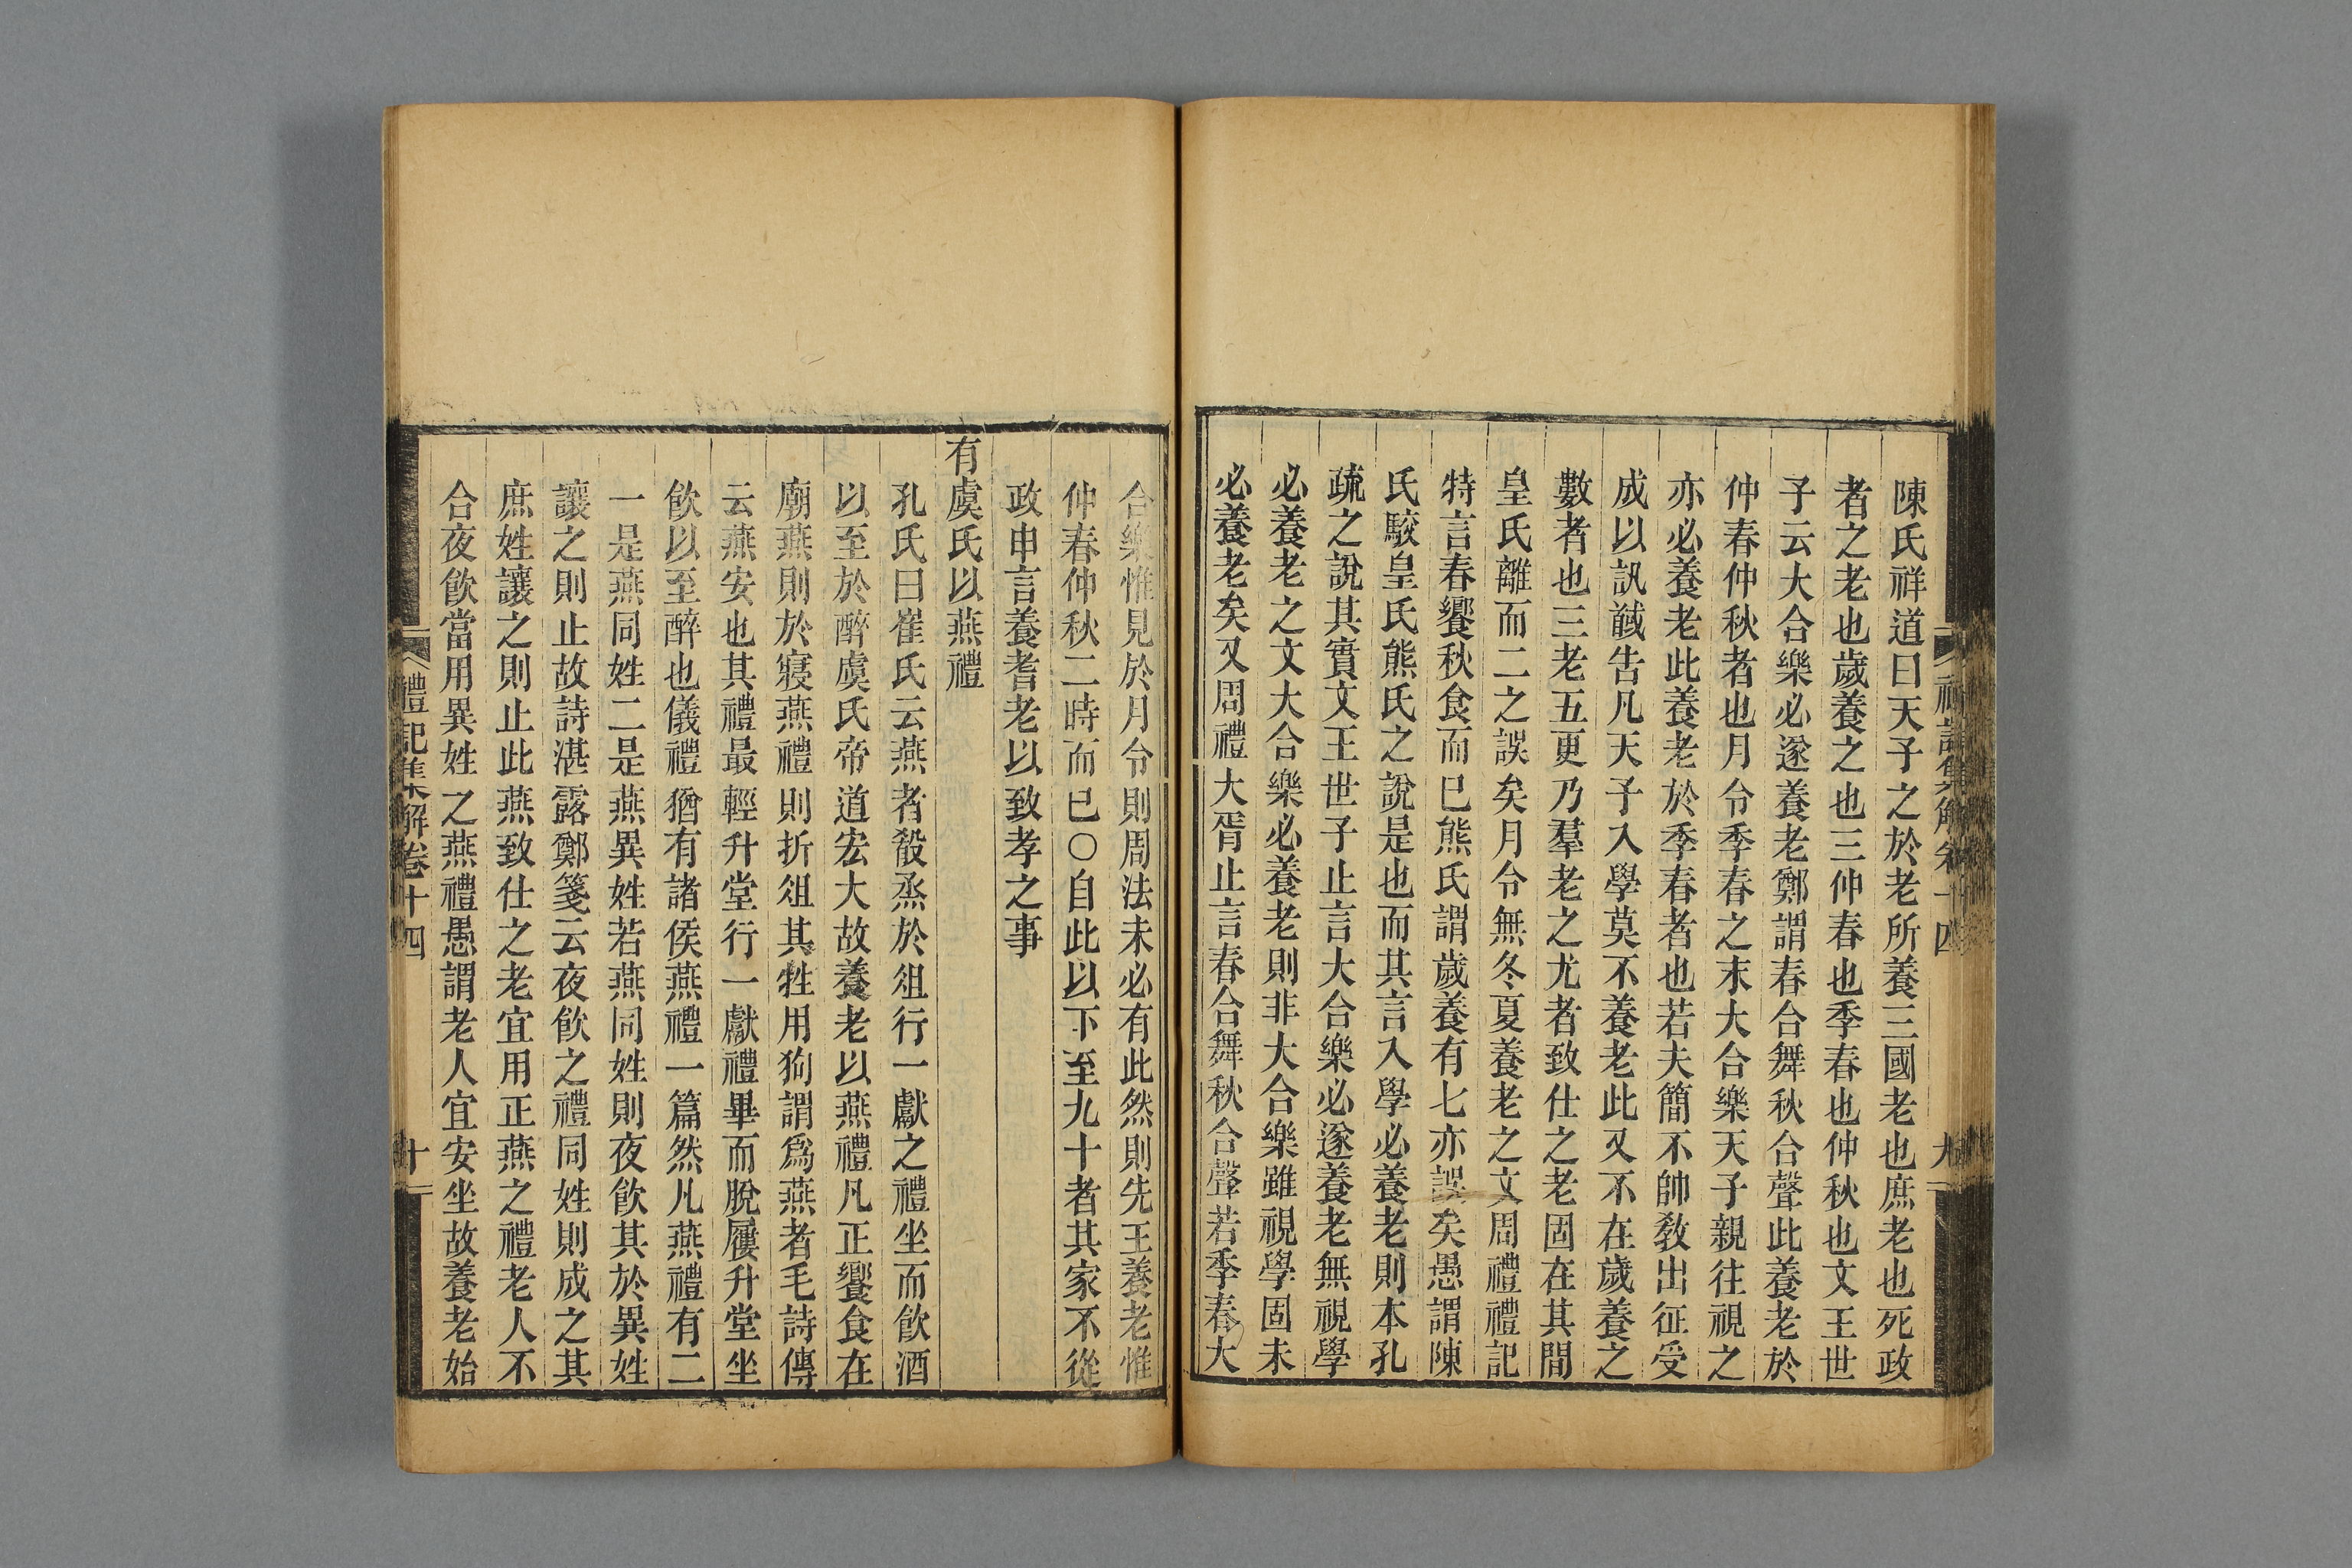 陳氏祥道曰天子之於老所養三國老也庶老也死政
者之老也歲養之也三仲春也季春也仲秋也文王世
子云大合樂必遂養老鄭謂春合舞秋合聲此養老於
仲春仲秋者也月令季春之末大合樂天子親往視之
亦必養老此養老於季春者也若夫簡不帥敎出征受
成以訊馘告凡天子入學莫不養老此又不在歲養之
數者也三老五更乃羣老之尤者致仕之老固在其閒
皇氏離而二之誤矣月令無冬夏養老之文周禮禮記
特言春饗秋食而已熊氏謂歲養有七亦誤矣愚謂陳
氏駮皇氏熊氏之說是也而其言入學必養老則本孔
疏之說其實文王世子止言大合樂必遂養老無視學
必養老之文大合樂必養老則非大合樂雖視學固未
必養老矣又周禮大胥止言春合舞秋合聲若季春大
禮記集解卷十四
九
合樂惟見於月令則周法未必有此然則先王養老惟
仲春仲秋二時而已○自此以下至九十者其家不從
政申言養耆老以致孝之事
有虞氏以燕禮
孔氏曰崔氏云燕者殽烝於俎行一獻之禮坐而飮酒
以至於醉虞氏帝道宏大故養老以燕禮凡正饗食在
廟燕則於寢燕禮則折俎其牲用狗謂爲燕者毛詩傳
云燕安也其禮最輕升堂行一獻禮畢而脫屨升堂坐
飮以至醉也儀禮猶有諸侯燕禮一篇然凡燕禮有二
一是燕同姓二是燕異姓若燕同姓則夜飮其於異姓
讓之則止故詩湛露鄭箋云夜飮之禮同姓則成之其
庶姓讓之則止此燕致仕之老宜用正燕之禮老人不
合夜飮當用異姓之燕禮愚謂老人宜安坐故養老始
禮記集解卷十四
十